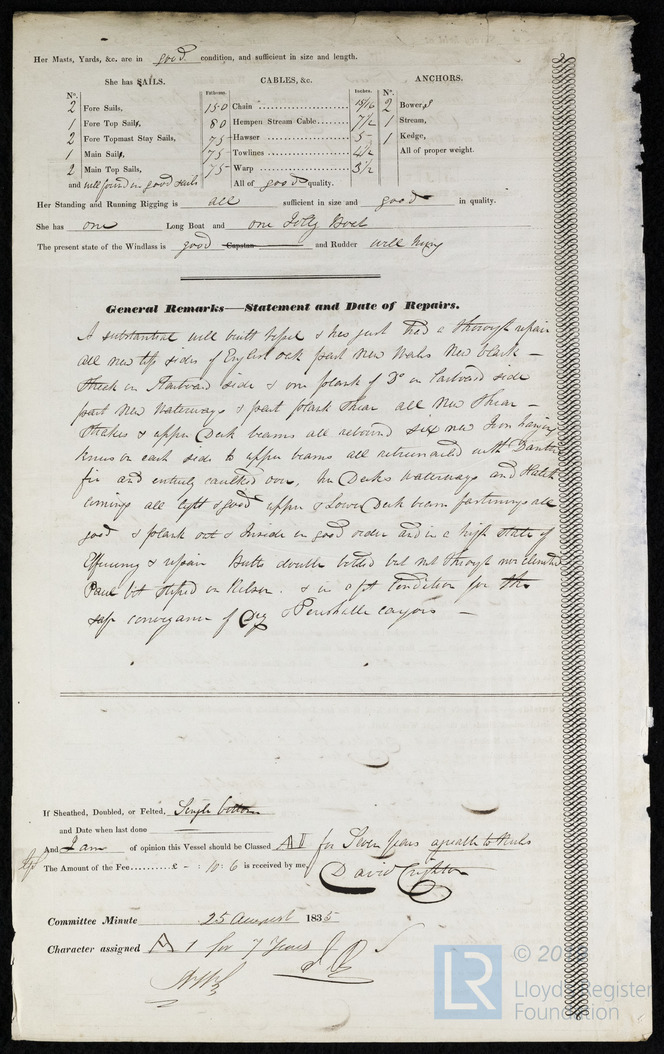 Her Masts, Yards, &c. are in good condition, and sufficient in size and length.
She has SAILS. CABLES, &c. ANCHORS.
Nº. Fathoms. Inches. Nº.
2 Fore Sails, 150 Chain 15/16 2 Bowers
1 Fore Top Sails, 80 Hempen Stream Cable 7/2 1 Stream,
2 Fore Topmast Stay Sails, 75 Hawser 5 1 Kedge,
1 Main Sails, 75 Towlines 4/2 All of proper weight.
2 Main Top Sails, 75 Warp 3 1/2
and well found in good sails All of good quality.
Her Standing and Running Rigging is all sufficient in size and good in quality.
She has one Long Boat and one Jolly Boat
The present state of the Windlass is good Capstan and Rudder well hung
General Remarks—Statement and Date of Repairs.
A substantial well built vessel & has just had a thorough repair
all new top sides of English oak part New Wales New black –
Streak on Starboard side & one plank of Do on Larboard side
part New Waterways & part plank Shear all New Shear –
Strakes & upper Deck beams all rebound six new Iron hanging
knees on each side to upper beams all
fir and entirely caulked over, her Decks waterways and Hatch
comings all tight & good upper & Lower Deck beam fastenings all
good & plank out & Inside in good order and in a high state of
Efficiency & repair Butts double bolted but not through nor clenched
Paul bit on Kelson & in a fit condition for the
safe conveyance of Dry & Perishable cargoes –
If Sheathed, Doubled, or Felted, Single bottom
and Date when last done
And I am of opinion this Vessel should be Classed A1 for Seven Years agreeable to Rules
The Amount of the Fee £ - : 10 : 6 is received by me, David Crighton
Committee Minute 25 August 1835
Character assigned A 1 for 7 Years
LR © 201
Lloyd's Register
Foundation